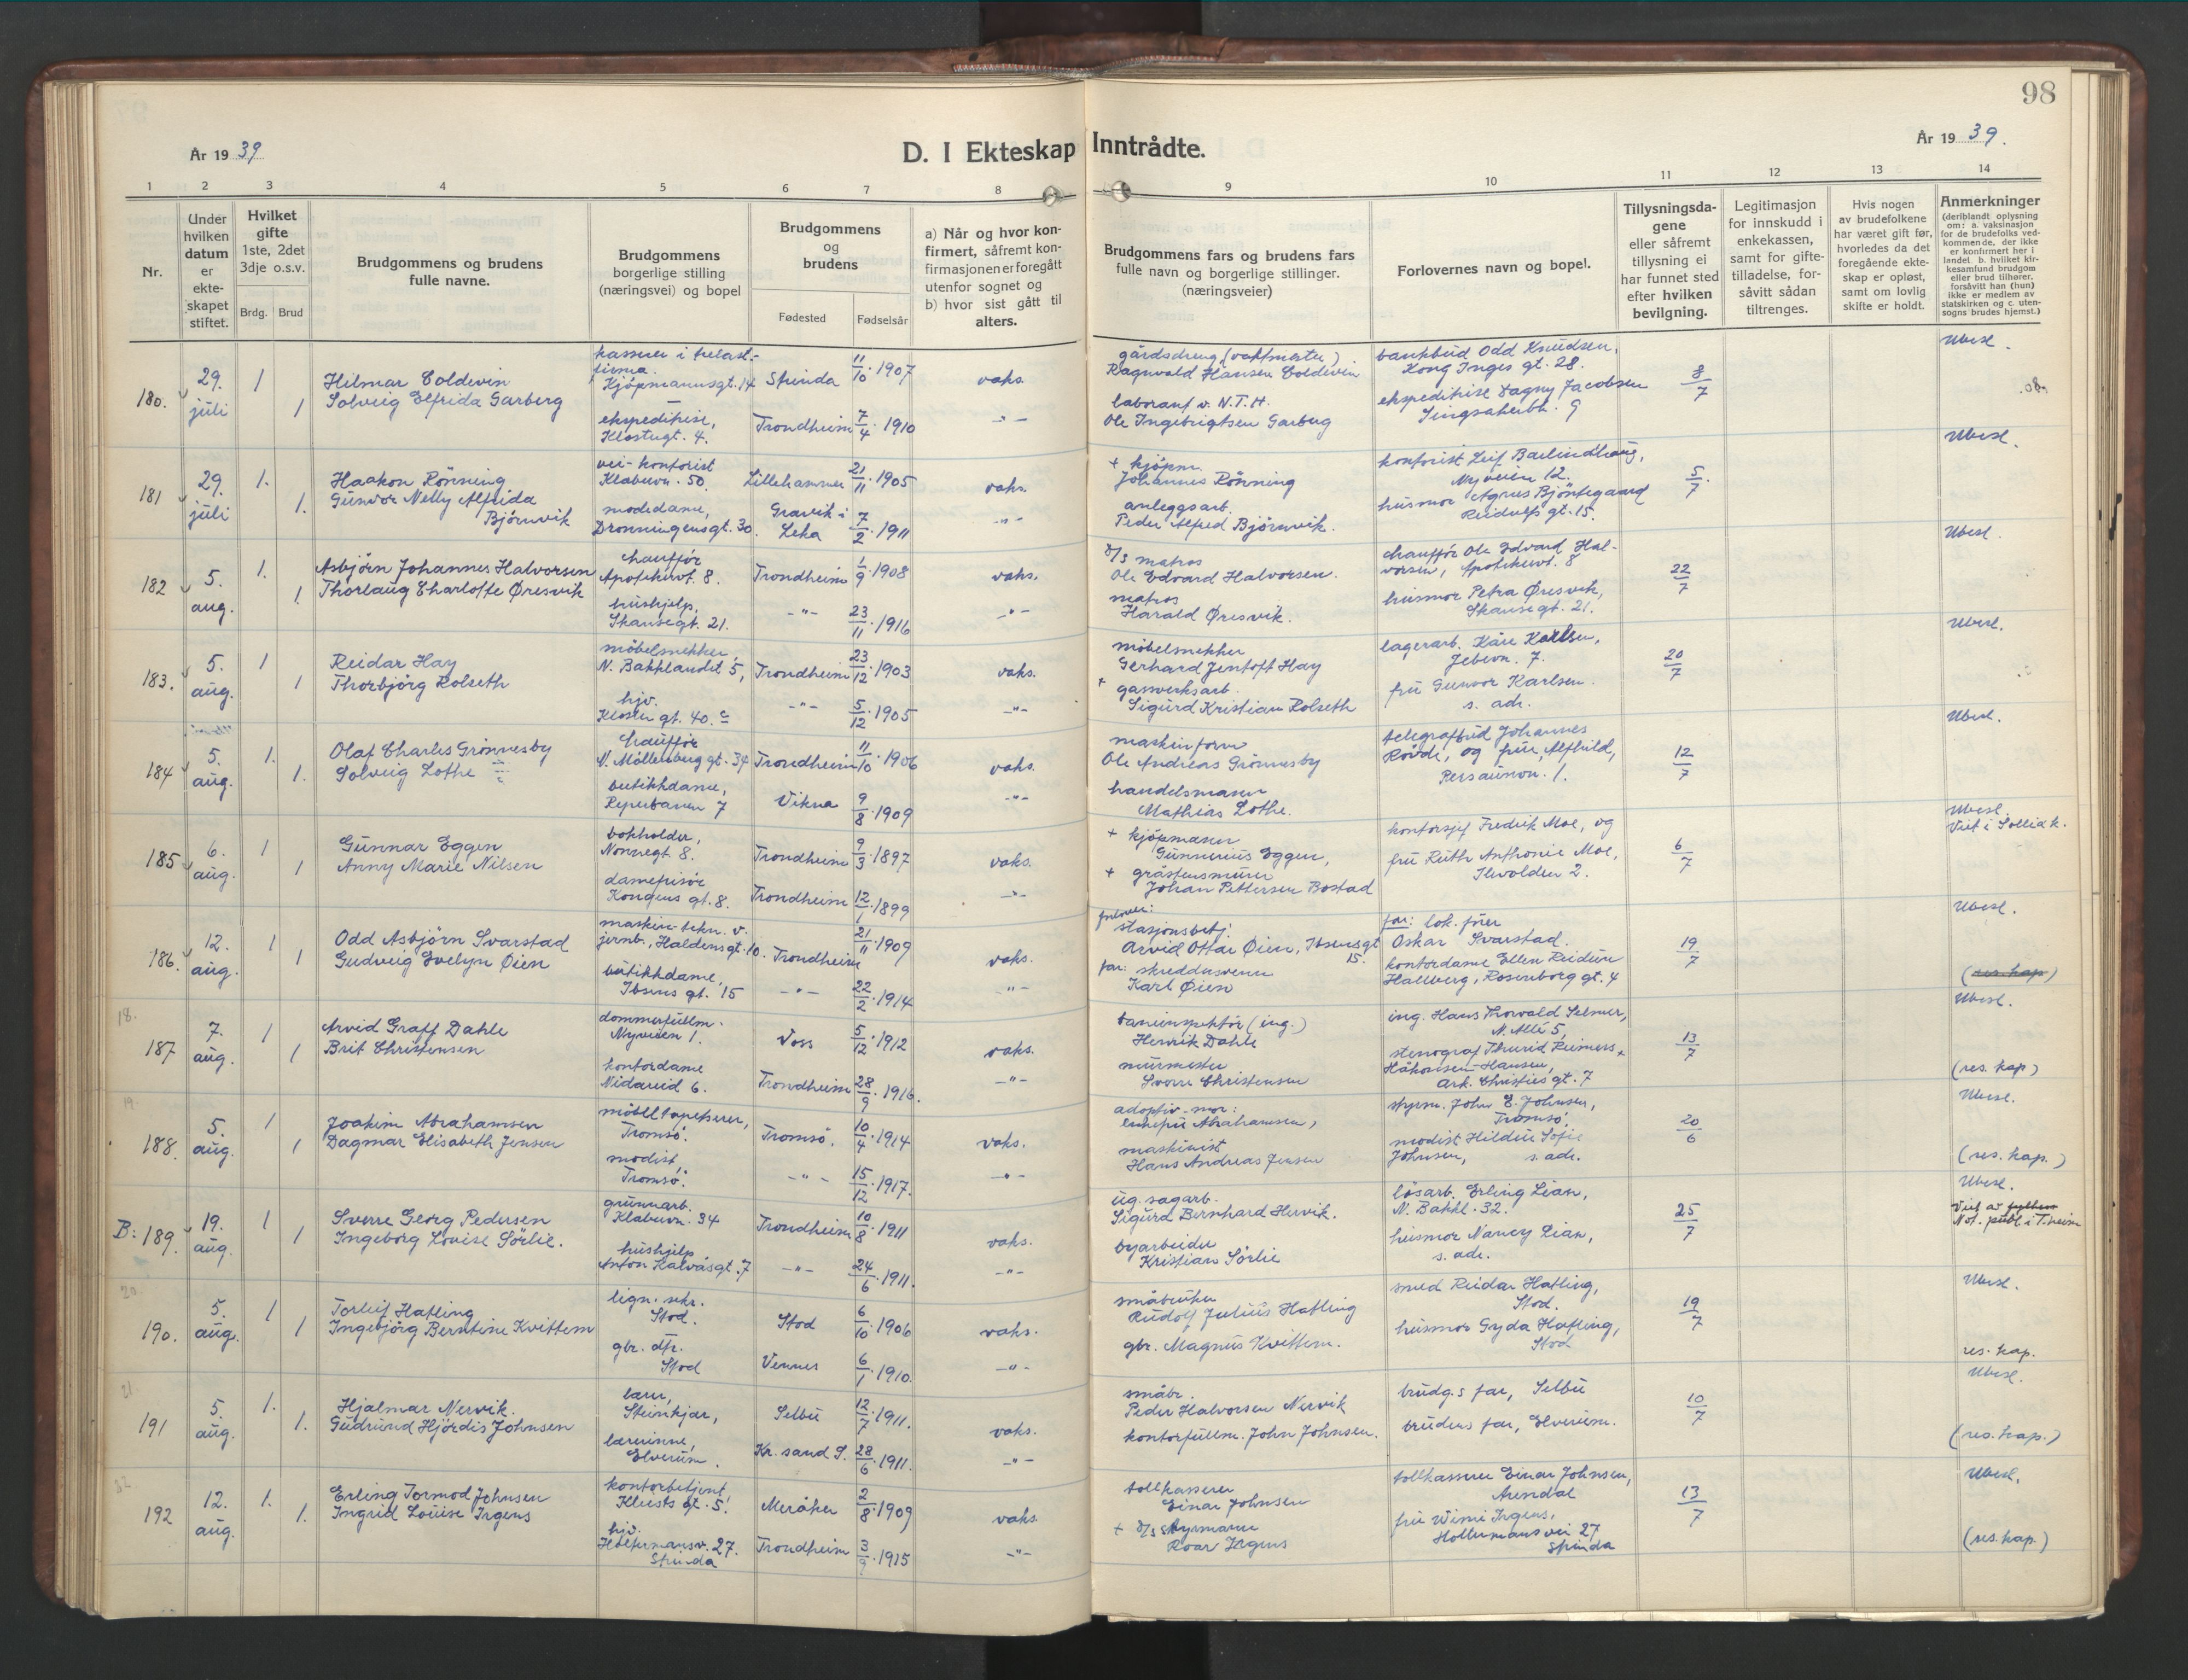 98
År 19 39
D. I Ekteskap Inntrådte.
År 19 39.
1 2 3 4 5 6 7 8 9 10 11 12 13 14
Nr.
Under hvilken datum er ekte-skapet stiftet.
Hvilket gifte 1ste, 2det 3dje o.s.v.
Brdg. Brud
Brudgommens og brudens fulle navne.
Brudgommens borgerlige stilling (næringsvei) og bopel
Brudgommens og brudens
Fødested Fødselsår
a) Når og hvor kon-firmert, såfremt kon-firmasjonen er foregått utenfor sognet og b) hvor sist gått til alters.
Brudgommens fars og brudens fars fulle navn og borgerlige stillinger. (næringsveier)
Forlovernes navn og bopel.
Tillysningsda-gene eller såfremt tillysning ei har funnet sted efter hvilken bevilgning.
Legitimasjon for innskudd i enkekassen, samt for gifte-tilladelse, for-såvitt sådan tiltrenges.
Hvis nogen av brudefolkene har været gift før, hvorledes da det foregående ekte-skap er opløst, samt om lovlig skifte er holdt.
Anmerkninger (deriblandt oplysning om: a. vaksinasjon for de brudefolks ved-kommende, der ikke er konfirmert her i landet. b. hvilket kir-kesamfund brudgom eller brud tilhører, forsåvitt han (hun) ikke er medlem av statskirken og c. uten-sogns brudes hjemst.)
180. 29. juli 1 1
Hilmar Coldevin
Solveig Elfrida Garberg
kasserer i trelast-firma. Kjøpmannsgt. 14 Strinda 11/10 1907 vaks.
ekspeditrise, Klostergt. 4. Trondheim 7/4 1910 -"-
gårdsdreng (vaktmester)
Ragnvald Hansen Coldevin
laborant v. N.T.H.
Ole Ingebrigtsen Garberg
bankbud Odd Knudsen,
Kong Inges gt. 28.
ekspeditrise Dagny Jacobsen
9
8/7
Ubesl.
181 29. juli 1. 1.
Haakon Rönning
Gunvor Nelly Alfrida
Björnvik
vei-kontorist
Klæbuv. 50. Lillehammer 21/11 1905 vaks.
motedame,
Dronningensgt. 30. Gravik i Leka 7/2 1911 -"-
+ kjöpm.
Johannes Rönning
anleggsarb.
Peder Alfred Björnvik.
kontorist Leif Barlindhaug,
Nyveien 12.
husmor Agnes Bjöntegaard
Reidulfs gt. 15.
5/7.
Ubesl.
182 5. aug. 1. 1.
Asbjörn Johannes Halvorsen
Thorlaug Charlotte Øresvik
chauffør
Apotekervt. 8. Trondheim 1/9 1908 vaks.
hushjelp,
Skansegt. 21. -"- 23/11 1916 -"-
d/s matros
Ole Edvard Halvorsen.
matros
Harald Øresvik.
chauffør Ole Edvard Hal-
vorsen, Apotekervt. 8
husmor Petra Øresvik,
Skansegt. 21.
22/7
Ubesl.
183. 5. aug. 1 1
Reidar Hay
Thorbjörg Rolseth
möbelsnekker,
N. Bakklandet 5, Trondheim 23/12 1903 vaks.
hjv.
Kloster gt. 40. c -"- 5/12 1905 -"-
möbelsnekker
Gerhard Jentoft Hay
+ gassverksarb.
Sigurd Kristian Rolseth
lagerarb. Kåre Karlsen,
Jebevn. 7.
fru Gunvor Karlsen.
s. adr.
20/7
Ubesl.
184 5. aug. 1. 1.
Olaf Charles Grönnesby
Solveig Lothe
chauffør
N. Möllenberg gt. 34 Trondheim 11/10 1906 vaks.
butikkdame,
Reperbanen 7 Vikna 9/8 1909 -"-
maskinform
Ole Andreas Grönnesby
handelsmann
Mathias Lothe.
telegrafbud Johannes
Rövde, og frue, Alfhild,
Persaunvn. 1.
12/7
Ubesl.
185 6. aug. 1 1
Gunnar Eggen
Anny Marie Nilsen
bokholder,
Nonnegt. 8. Trondheim 9/3 1897 vaks.
damefrisör
Kongens gt. 8. Trondheim 12/1 1899 -"-
+ kjöpmann
Gunnerius Eggen,
+ gråstensmurer
Johan Pettersen Bostad
kontorsjef Fredrik Moe, og
fru Ruth Anthonie Moe,
Ilevolden 2.
6/7
Ubesl.
Viet i k.
186. 12. aug. 1 1
Odd Asbjörn Svarstad
Gudveig Evelyn Øien
maskin-tekn. v.
jernb., Haldensgt. 10. Trondheim 21/11 1909 vaks.
butikkdame,
Ibsens gt. 15 -"- 22/2 1914 -"-
forlover:
stasjonsbetj.
Arvid Ottar Øien, Ibsensgt 15.
far: skreddersvenn
Karl Øien
far: lok. förer
Oskar Svarstad.
kontordame Ellen Reidun
Hallberg, Rosenborg gt. 4
19/7
Ubesl.
(res. kap)
18.
187 7. aug. 1 1
Arvid Graff Dahle
Brit Christensen
dommerfullm.
Nyveien 1. Voss 5/12 1912 vaks.
kontordame
Nidareid 6. Trondheim 28/9 1916. -"-
baneinspektör (ing.)
Henrik Dahle
murmester
Sverre Christensen
ing. Hans Thorvald Selmer,
N. Allé 5,
stenograf Thurid Reimers
Håkonsen-Hansen,
Ark. Christies gt. 7
13/7
Ubesl.
(res. kap)
19.
188. 5. aug. 1 1
Joakim Abrahamsen
Dagmar Elisabeth Jensen
möbeltapetserer,
Tromsö. Tromsö. 10/4 1914 vaks.
modist,
Tromsö. -"- 15/12 1917. -"-
adoptiv-mor:
enkefru Abrahamsen,
maskinist
Hans Andreas Jensen
styrm. John E. Johnsen,
Tromsö.
modist Hildur Sofie
Johnsen, s. adr.
20/6
Ubesl.
(res. kap.)
B: 189. 19. aug. 1 1
Sverre Georg Pedersen
Ingeborg Lovise Sörlie.
grunnarb.
Klæbuvn. 34 Trondheim 10/8 1911 vaks.
hushjelp
Anton Kalvåsgt. 7 -"- 24/6 1911. -"-
ug. sagarb.
Sigurd Bernhard Hervik.
byarbeider
Kristian Sörlie
lösarb. Erling Lian,
N. Bakkl. 32.
husmor Nancy Lian,
s. adr.
25/7
Ubesl.
Viet av
Not. publ. i T.heim
20
190. 5. aug. 1 1
Torleif Hatling
Ingebjörg Berntine Kvittem
lign. sekr.
Stod. Stod 6/10 1906 vaks.
gbr. dtr.
Stod Vennes 6/1 1910. -"-
småbruker
Rudolf Julius Hatling
gbr. Magnus Kvittem.
smed Reidar Hatling,
Stod.
husmor Gyda Hatling,
Stod
19/7
Ubesl.
res. kap.
21.
191 5. aug. 1. 1.
Hjalmar Nervik.
Gudrund Hjördis Johnsen
lærer,
Steinkjer, Selbu 12/7 1911. vaks.
lærerinne,
Elverum. Kr. sand S. 28/6 1911. -"-
småbr.
Peder Halvorsen Nervik
kontorfullm. John Johnsen.
brudg.s far, Selbu
brudens far, Elverum.
10/7
Ubesl.
(res. kap.)
192 12. aug. 1. 1.
Erling Tormod Johnsen
Ingrid Louise Irgens
kontorbetjent,
gt. 5. Meråker 2/8 1909 vaks.
hjv.
Holtermansv. 27.
Strinda Trondheim 3/9 1915 -"-
tollkasserer
Einar Johnsen
+ d/s styrmann
Roar Irgens
tollkasserer Einar Johnsen,
Arendal
fru Irgens,
Holtermans vei 27
Strinda
13/7
Ubesl.
(res. kap.)